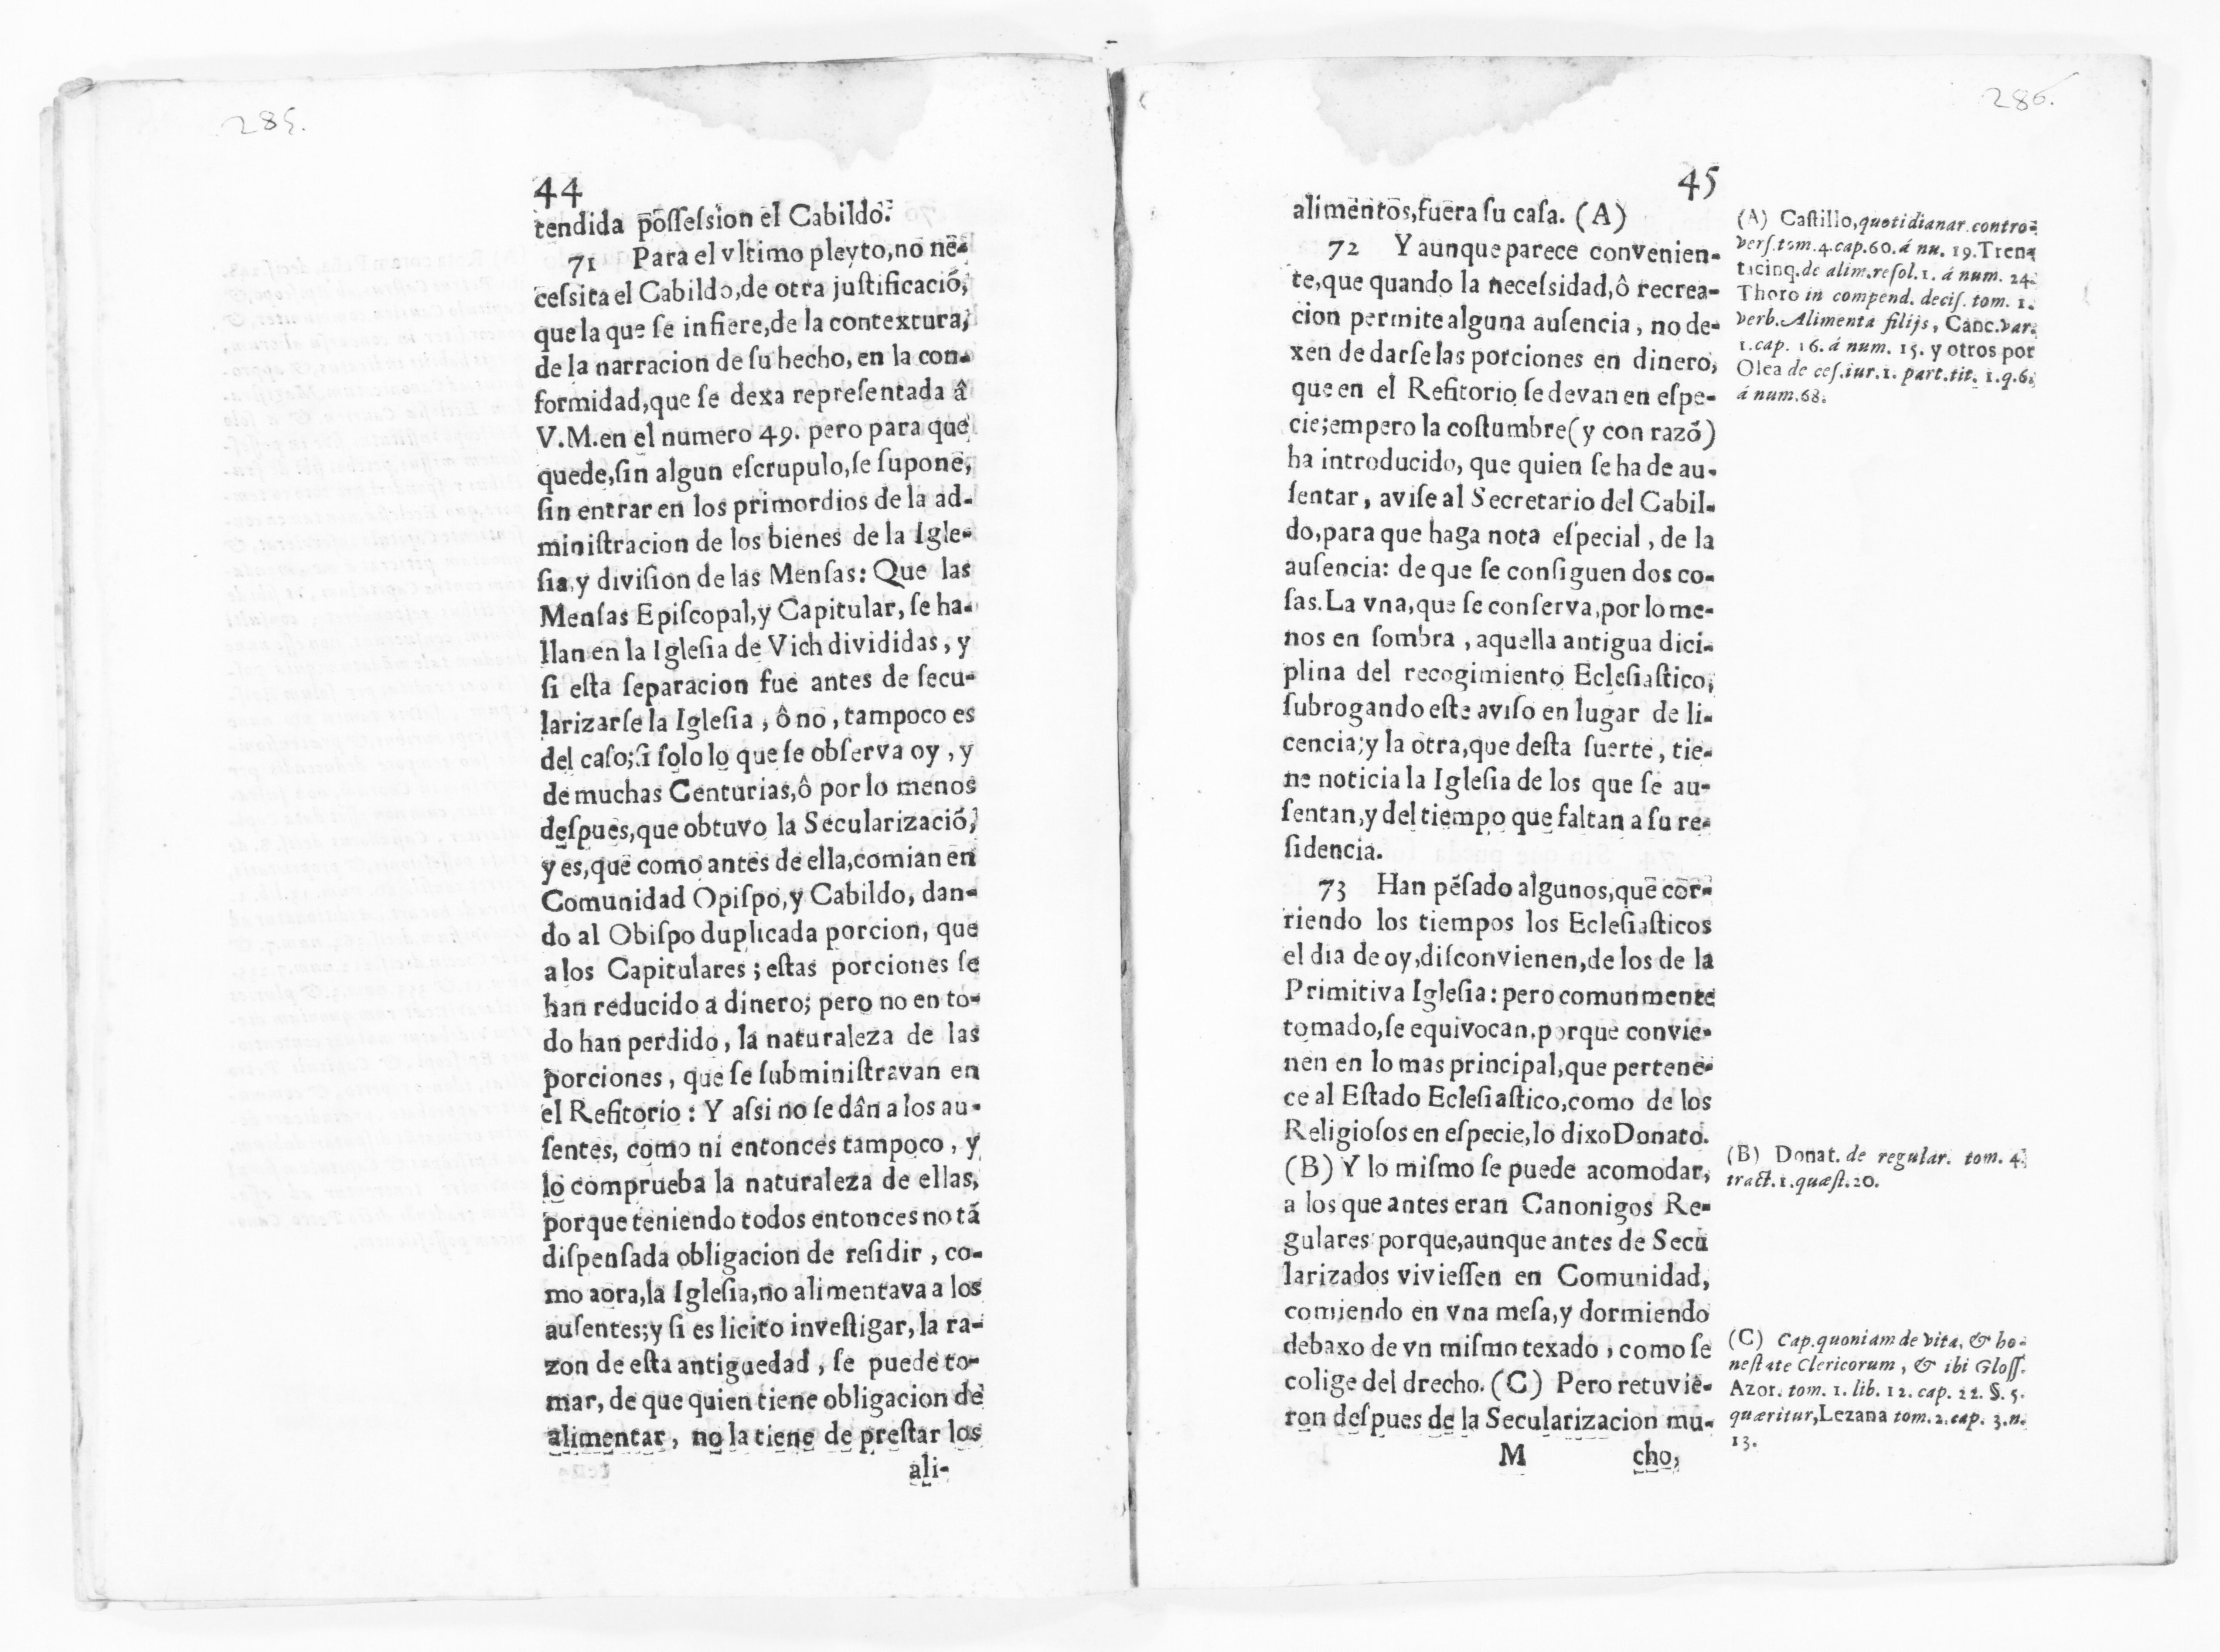 285.
44
tendida possession el Cabildo.
71 Para el vltimo pleyto, no ne-
cessita el Cabildo, de otra justificació,
que la que se infiere, de la contextura,
de la narracion de su hecho, en la con-
formidad, que se dexa representada â
V.M. en el numero 49. pero para que
quede, sin algun escrupulo, se supone,
sin entrar en los primordios de la ad-
ministracion de los bienes de la Igle-
sia, y division de las Mensas: Que las
Mensas Episcopal, y Capitular, se ha-
llan en la Iglesia de Vich divididas, y
si esta separacion fue antes de secu-
larizarse la Iglesia, ô no, tampoco es
del caso; si solo lo que se observa oy, y
de muchas Centurias, ô por lo menos
despues, que obtuvo la Secularizació,
y es, que como antes de ella, comian en
Comunidad Opispo, y Cabildo, dan-
do al Obispo duplicada porcion, que
a los Capitulares; estas porciones se
han reducido a dinero; pero no en to-
do han perdido, la naturaleza de las
porciones, que se subministravan en
el Refitorio: Y assi no se dân a los au-
sentes, como ni entonces tampoco, y
lo comprueba la naturaleza de ellas,
porque teniendo todos entonces no tá
dispensada obligacion de residir, co-
mo aora, la Iglesia, no alimentava a los
ausentes; y si es licito investigar, la ra-
zon de esta antiguedad, se puede to-
mar, de que quien tiene obligacion de
alimentar, no la tiene de prestar los
ali-
286.
45
alimentos, fuera su casa. (A)
72 Y aunque parece convenien-
te, que quando la necessidad, ô recrea-
cion permite alguna ausencia, no de-
xen de darse las porciones en dinero,
que en el Refitorio se devan en espe-
cie; empero la costumbre (y con razó)
ha introducido, que quien se ha de au-
sentar, avise al Secretario del Cabil-
do, para que haga nota especial, de la
ausencia: de que se consiguen dos co-
sas. La vna, que se conserva, por lo me-
nos en sombra, aquella antigua dici-
plina del recogimiento Eclesiastico,
subrogando este aviso en lugar de li-
cencia; y la otra, que desta suerte, tie-
ne noticia la Iglesia de los que se au-
sentan, y del tiempo que faltan a su re-
sidencia.
73 Han pésado algunos, que cor-
riendo los tiempos los Eclesiasticos
el dia de oy, disconvienen, de los de la
Primitiva Iglesia: pero comunmente
tomado, se equivocan. porque convie-
nen en lo mas principal, que pertene-
ce al Estado Eclesiastico, como de los
Religiosos en especie, lo dixo Donato.
(B) Y lo mismo se puede acomodar,
a los que antes eran Canonigos Re-
gulares: porque, aunque antes de Secu
larizados viviessen en Comunidad,
comiendo en vna mesa, y dormiendo
debaxo de vn mismo texado, como se
colige del drecho. (C) Pero retuvie-
ron despues de la Secularizacion mu-
M cho,
(A) Castillo, quotidianar. contro-
vers. tom. 4. cap. 60. á nu. 19. Tren-
ticinq. de alim. resol. 1. á num. 24.
Thoro in compend. decis. tom. 1.
verb. Alimenta filijs, Canc. var.
1. cap. 16. á num. 15. y otros por
Olea de ces. iur. 1. part. tit. 1. q. 6.
á num. 68.
(B) Donat. de regular. tom. 4.
tract. 1. quæst. 20.
(C) Cap. quoniam de vita, & ho-
nestate Clericorum, & ibi Gloss.
Azor. tom. 1. lib. 12. cap. 22. §. 5.
quæritur, Lezana tom. 2. cap. 3. n.
13.